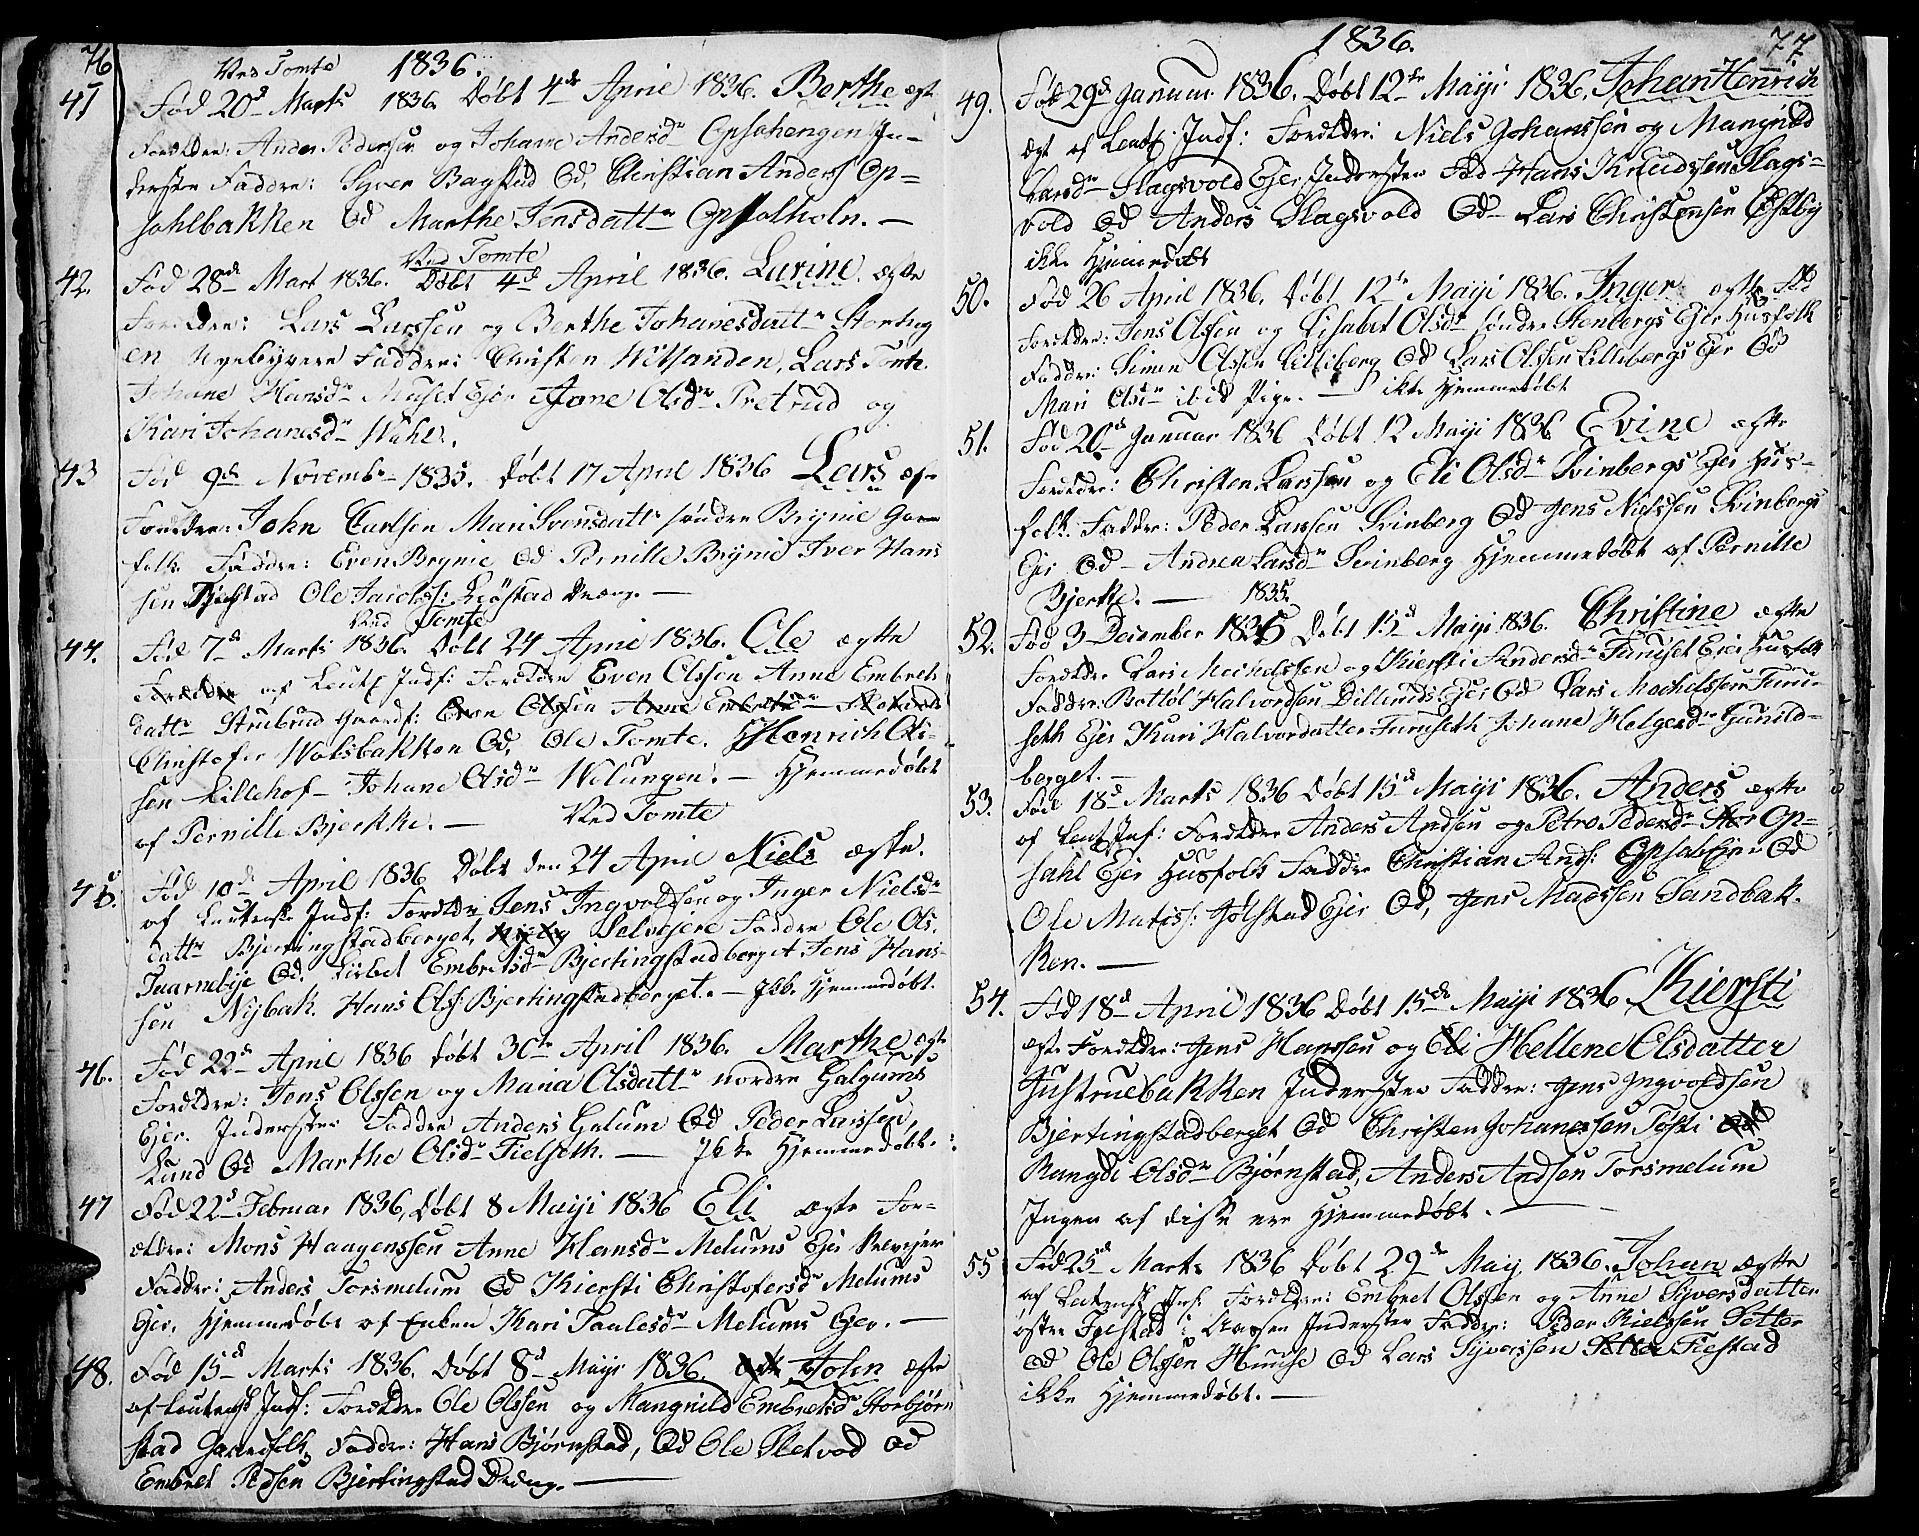 76
Ved Tomte 1836.
41 Fød 20d Marts 1836. Døbt 4de April 1836. Berthe ægt.
Forældre: Anders Pedersen og Johane Andersdr Opsahengen In-
derster Faddre: Syver Bagstad Od, Christian Anders Op-
sahlbakken Od Marthe Jensdattr Opsalholn. —
Ved Tomte
42. Fød 28d Mart 1836. Døbt 4d April 1836. Lurine. ægte
Forældre: Lars Larssen og Berthe Johanesdattr Storhug
en Nyebyyere Faddre: Christen Witsanden, Lars Tomte.
Johane Hansdr Muset Ejer Jone Olsdr Pretrud og
Kari Johanesdr Wahl.
43 Fød 9de Novembr 1835. Døbt 17 April 1836 Lars æg-
Forældre: John Carlsen Mari Svensdattr søndre Brynie Gaard
folk Faddre: Even Brynie Od Pernille Brynie Iver Hans
sen Ole Jacobs: Dreng. —
Ved Tomte
44. Fød 7d Marts 1836. Døbt 24 April 1836. Ole ægte
Forældre af Leutz Indf: Forældre Even Olssen Anne Embrets
dattr Strubrud Gaardf: Even Olssen Anne Embretsdr
Christofer Wolsbakken Od, Ole Tomte. Henrich Ols-
sen Lillehof - Johane Olsdr Welungen. — Hjemmedøbt
af Pernille Bjerkke. — Ved Tomte
45. Fød 10d April 1836 Døbt den 24 April Niels ægte.
af Leutenske Indf: Forældre Jens Ingvoldsen og Inger Niels
dattr Bjertingstadberget, Selvejere Faddre Ole Ols.
Tuarnebye Od. Lisbet Embretsdr Bjertingstadberget Jens Hans-
sen Nijbak. Hans Olss: Bjertingstadberget. — Ikke Hjemmedøbt.
46. Fød 22d April 1836 døbt 30te April 1836. Marthe ægte
Forældre: Jens Olssen og Maria Olsdattr nordre Galgums
Ejer. Inderster Faddre Anders Galum Od Peder Larssen,
Lund Od Marthe Olsdr Fielseth. — Ikke Hjemmedøbt.
47 Fød 22d Februar 1836, døbt 8 Maiji 1836 Eli ægte For-
ældre: Mons Haagenssen Anne Hansdr Melums Ejer Selvejer
Faddre: Anders Torsmelum Od Kiersti Christofersdr Melums
Ejer, Hjemmedøbt af Enken Kari Paulesdr Melums Ejer. —
48. Fød 15d Marts 1836. Døbt 8d Maiji 1836. John ægte
af Leutensk Indf: Forældre Ole Olssen og Mangnild Embretsd Storbjørn
stad Gaardfolk Faddre: Hans Bjørnstad, Od Ole Sletvod Od
Embret Pedsen Bjertingstad Dreng. —
1836. 77
49. Fød 29d Januar 1836. Døbt 12te Maiji 1836. Johan Henrich
ægt af Leutz Indf: Forældre: Niels Johanssen og Mangnild
Larsdr Slagsvold Ejer Inderster Fad Hans Knudssen Slags-
vold Od Anders Slagsvold Od Lars Christensen Østby
ikke Hjemmedøbt
50. Fød 26 April 1836. Døbt 12te Maiji 1836. Inger ægte
Forældre: Jens Olssen og Lisabet Olsdr søndre Stenbergs Ejer Husfolk
Faddre: Simen Olssen Lilleberg Od Lars Olssen Lillebergs Ejer Od
Mari Olsdr ibid Pige. — ikke Hjemmedøbt
51. Fød 20d Januar 1836 Døbt 12 Maiji 1836 Evine ægte
Forældre: Christen Larssen og Eli Olsdr Svinbergs Ejer Hus-
folk Faddre: Peder Larssen Svinberg Od Jens Nielssen Svinbergs
Ejer Od Andrea Larsdr Svinberg Hjemmedøbt af Pernille
Bjerke. — 1835
52. Fød 3 December 1835 Døbt 15d Maiji 1836. Christine ægte
Forældre Lars Mechelssen og Kiersti Andersdr Furuset Ejer Husfolk
Faddre: Bottol Halvordsen Dillerud Ejer Od Lars Mechelssen Furu-
seth Ejer Kari Halvordatter Furuseth Johane Helgersdr Gunild-
berget. —
53. Fød 18d Marts 1836 Døbt 15d Maiji 1836. Anders ægte
af Leut Inf: Forældre Anders Andsen og Petro Pedersdr Op-
sahl Ejer Husfolk Faddre Christian Ands: Opsal Ejer Od
Ole Matiss: Jølstad Ejer Od, Jens Madssen Sandbak-
ken. —
54. Fød 18d April 1836 Døbt 15de Maiji 1836 Kiersti
ægte Forældre: Jens Hanssen og Eli Hellene Olsdatter
Gustruebakken Inderster Faddre: Jens Ingvoldsen
Bjertingstadberget Od Christen Johanessen Toski Od
Rangdi Olsdr Bjørnstad, Anders Andsen Torsmelum
Ingen af disse ere Hjemmedøbt. —
55 Fød 25d Marts 1836 Døbt 29de Maij 1836. Johan ægte
af Leutensk Inf: Forældre: Embret Olssen og Anne Syversdatter
østre Fiestad i Aasen Inderster Faddre: Peder Nielssen Setter
Od Ole Olssen Hunse Od Lars Syverssen Fiestad
ikke Hjemmedøbt. —